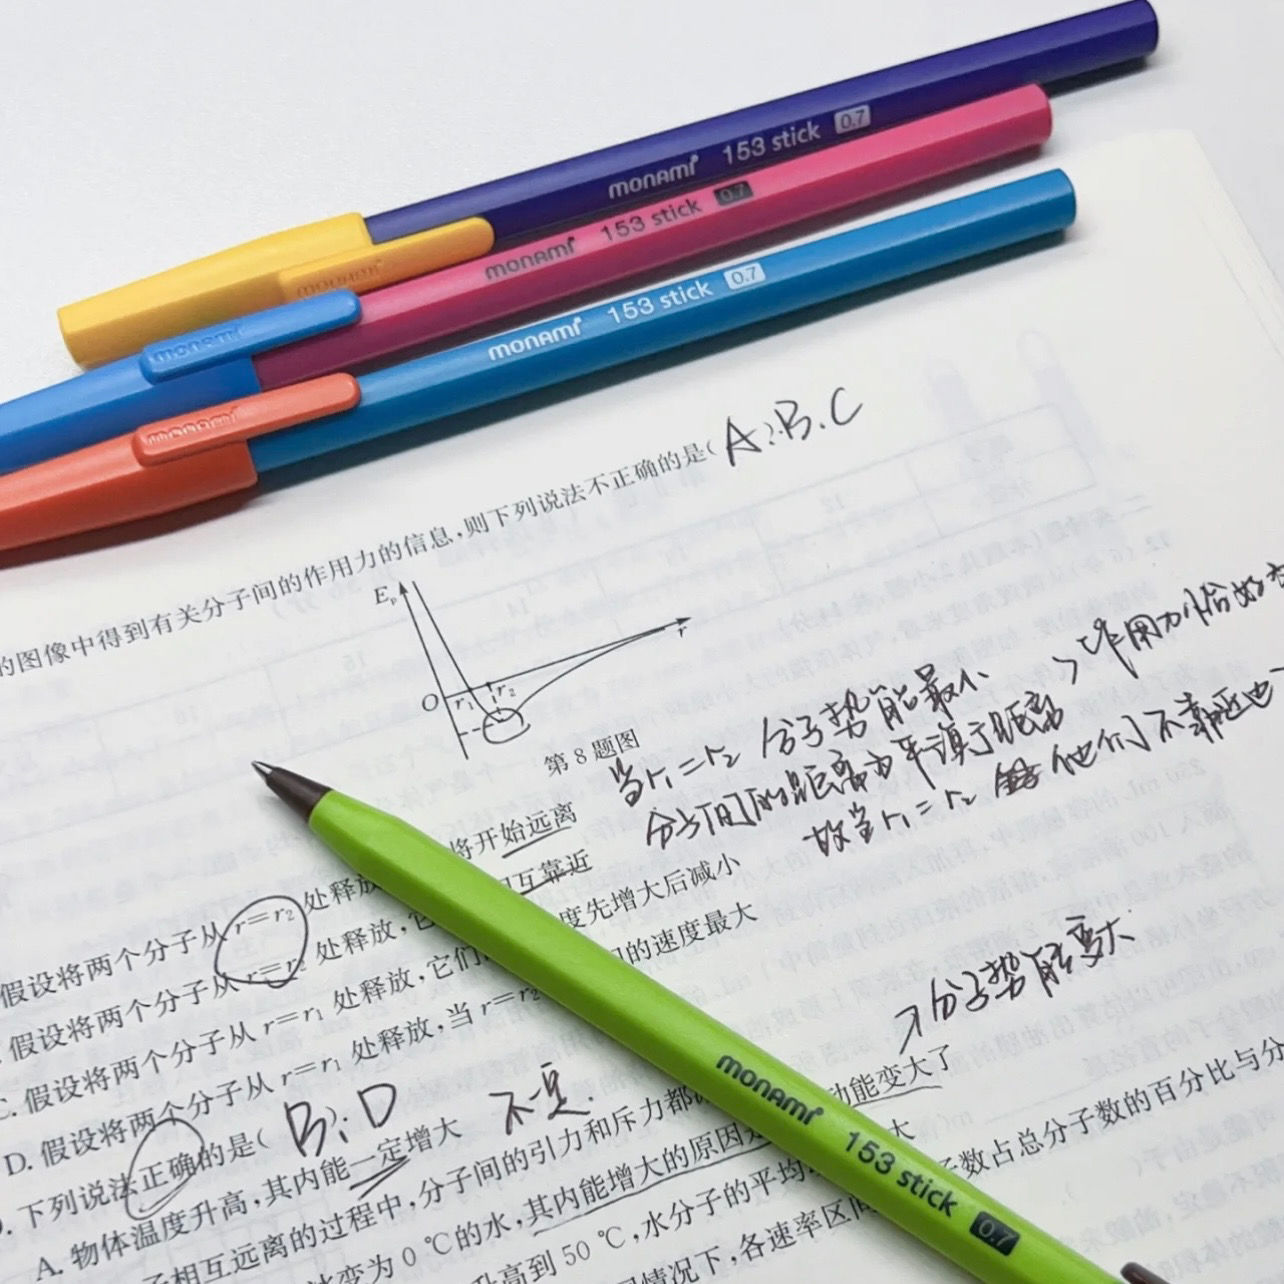 monami 153 stick 0.7
monami 153 stick 0.7
monami
monami 153 stick 0.7
monami
的图像中得到有关分子间的作用力的信息,则下列说法不正确的是( A.B.C
Eₚ
r
O r₁ r₂
第8题图
当r₁=r₂ 分子势能最小 > 作用力恰好
分子间的距离为平衡距离
故当r₁=r₂ 他们不靠近也
假设将两个分子从 r=r₂ 处释放 将开始远离
假设将两个分子从 r=r₂ 处释放,它 相互靠近
C. 假设将两个分子从 r=r₁ 处释放,它们 度先增大后减小
D. 假设将两个分子从 r=r₁ 处释放,当 r=r₂ 的速度最大
→分子势能变大
下列说法正确的是( B.D
A. 物体温度升高,其内能一定增大 不一定.
子相互远离的过程中,分子间的引力和斥力都
变为 0 ℃的水,其内能增大的原因是 动能变大了
升高到 50 ℃,水分子的平均 大
情况下,各速率区间 子数占总分子数的百分比与分
monami 153 stick 0.7